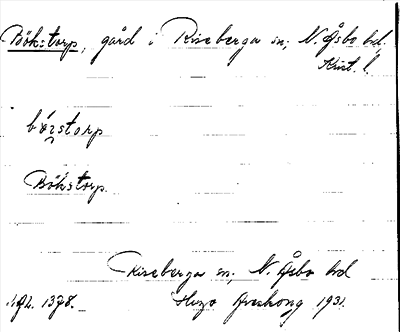 Bökstorp, gård i Riseberga sn, N. Åsbo hd,
Krist. l.
börstorp
Bökstorp.
Riseberga sn, N. Åsbo hd
1378. Hugo Areskoug 1931.